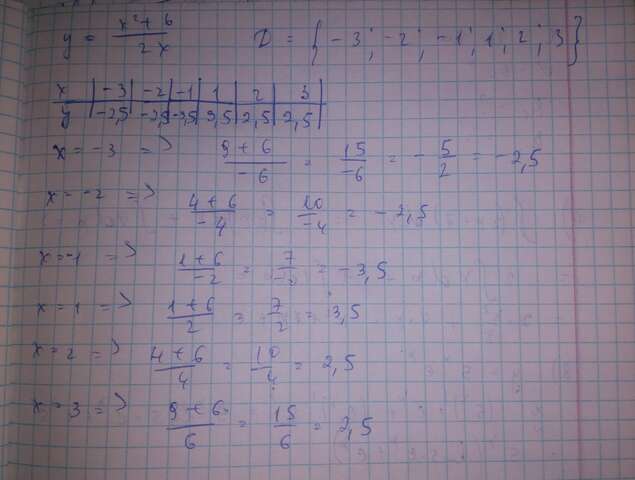 y = (x² + 6)/(2x)   D = {-3; -2; -1; 1; 2; 3}
x | -3 | -2 | -1 | 1 | 2 | 3
y | -2,5 | -2,5 | -3,5 | 3,5 | 2,5 | 2,5
x = -3 => (9 + 6)/(-6) = 15/(-6) = -5/2 = -2,5
x = -2 => (4 + 6)/(-4) = 10/(-4) = -2,5
x = -1 => (1 + 6)/(-2) = 7/(-2) = -3,5
x = 1 => (1 + 6)/2 = 7/2 = 3,5
x = 2 => (4 + 6)/4 = 10/4 = 2,5
x = 3 => (9 + 6)/6 = 15/6 = 2,5